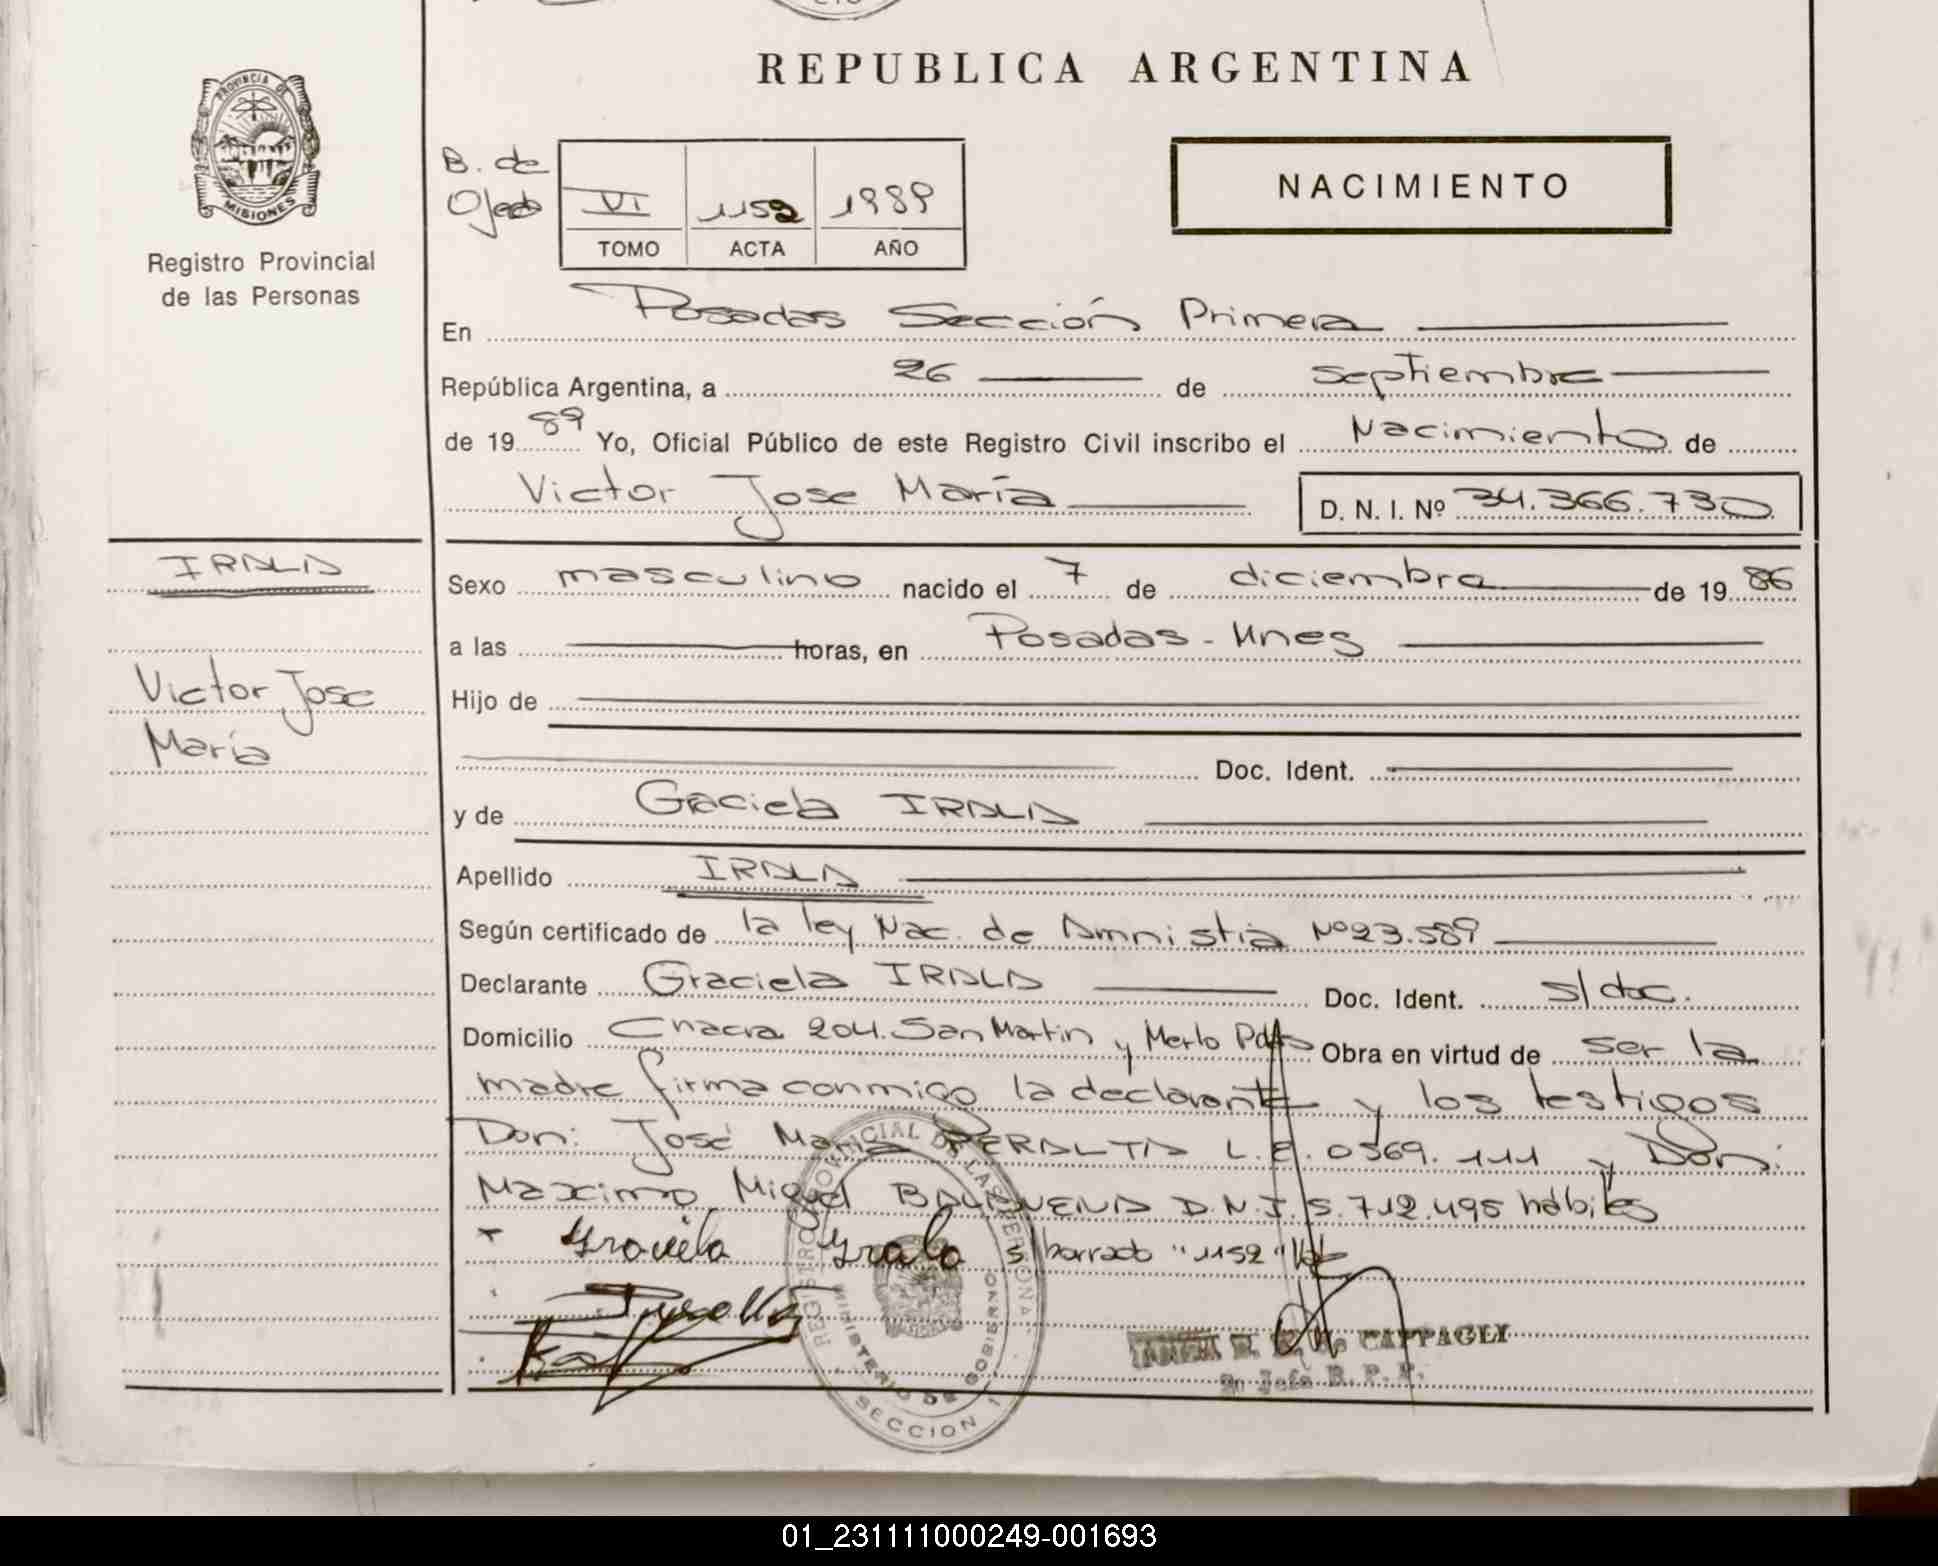 REPUBLICA ARGENTINA
PROVINCIA DE
MISIONES
Registro Provincial
de las Personas
B. de
VI 1152 1989
TOMO ACTA AÑO
NACIMIENTO
En Posadas Sección Primera
República Argentina, a 26 de septiembre
de 1989 Yo, Oficial Público de este Registro Civil inscribo el Nacimiento de
Victor Jose María D. N. I. Nº 34.366.730
IRALA
Sexo masculino nacido el 7 de diciembre de 1986
a las horas, en Posadas - Mnes
Victor Jose
María
Hijo de
Doc. Ident.
y de Graciela IRALA
Apellido IRALA
Según certificado de la ley Nac. de Amnistia Nº 23.589
Declarante Graciela IRALA Doc. Ident. s/doc.
Domicilio Chacra 204. San Martin y Merlo Pdas Obra en virtud de ser la
madre firma conmigo la declarante y los testigos
Don: José Maria PERALTA L.E. 0369.111 y Don:
Maximo Miguel D.N.I. 5.712.495 hábiles
Graciela Yrala S/borrado "1152" Vale
CAPPAGLI
Jefe R. P. P.
REGISTRO PROVINCIAL DE LAS PERSONAS
MINISTERIO DE GOBIERNO
SECCION 1
01_231111000249-001693